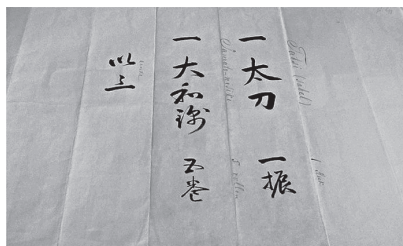 一太刀 一振
一大和錦 五巻
以上